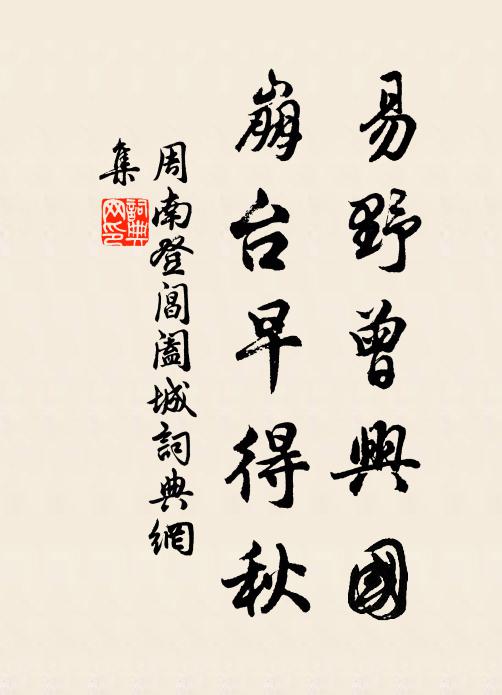 易野曾興國
崩台早得秋
周南登閶闔城詞典網
集
詞典
网印